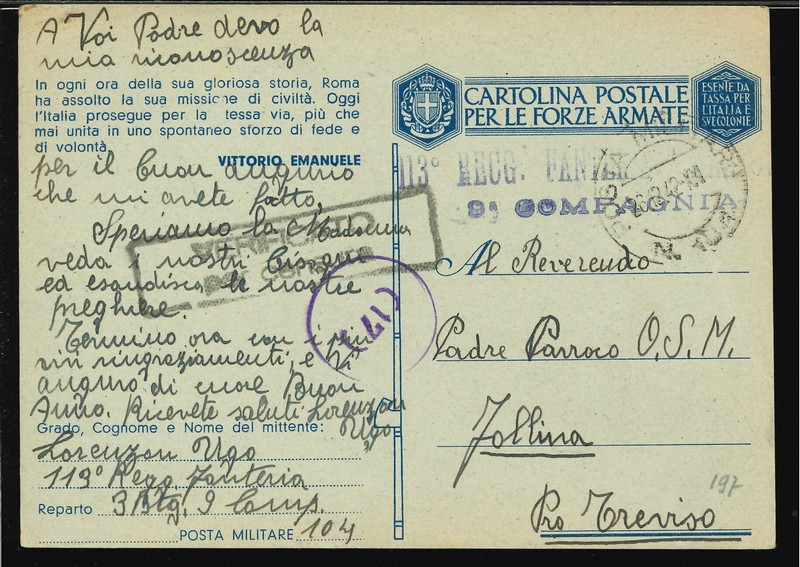 A Voi Padre devo la
mia riconoscenza
In ogni ora della sua gloriosa storia, Roma
ha assolto la sua missione di civiltà. Oggi
l'Italia prosegue per la tessa via, più che
mai unita in uno spontaneo sforzo di fede e
di volontà.
VITTORIO EMANUELE
per il buon augurio
che mi avete fatto,
Speriamo la Madonna
veda i nostri bisogni
ed esaudisca le nostre
preghiere.
Termino ora con i più
vivi ringraziamenti, e Vi
auguro di cuore Buon
Anno. Ricevete saluti Lorenzon
Ugo
Grado, Cognome e Nome del mittente:
Lorenzon Ugo
113° Regg. Fanteria
Reparto 3 Btg. 9 Comp.
POSTA MILITARE 104
VERIFICATO
PER CENSURA
(17)
CARTOLINA POSTALE
PER LE FORZE ARMATE
ESENTE DA
TASSA PER
L'ITALIA E
SVE COLONIE
113° REGG. FANTERIA
9ª COMPAGNIA
POSTA MILITARE
N. 104
Al Reverendo
Padre Parroco O.S.M.
Follina
Pro Treviso
197